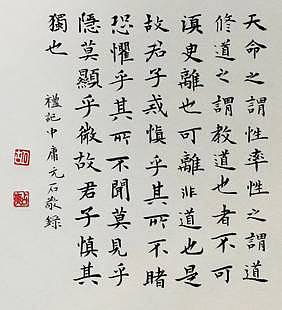 天命之謂性率性之謂道
修道之謂教道也者不可
須臾離也可離非道也是
故君子戒慎乎其所不睹
恐懼乎其所不聞莫見乎
隱莫顯乎微故君子慎其
獨也
禮記中庸元石敬錄